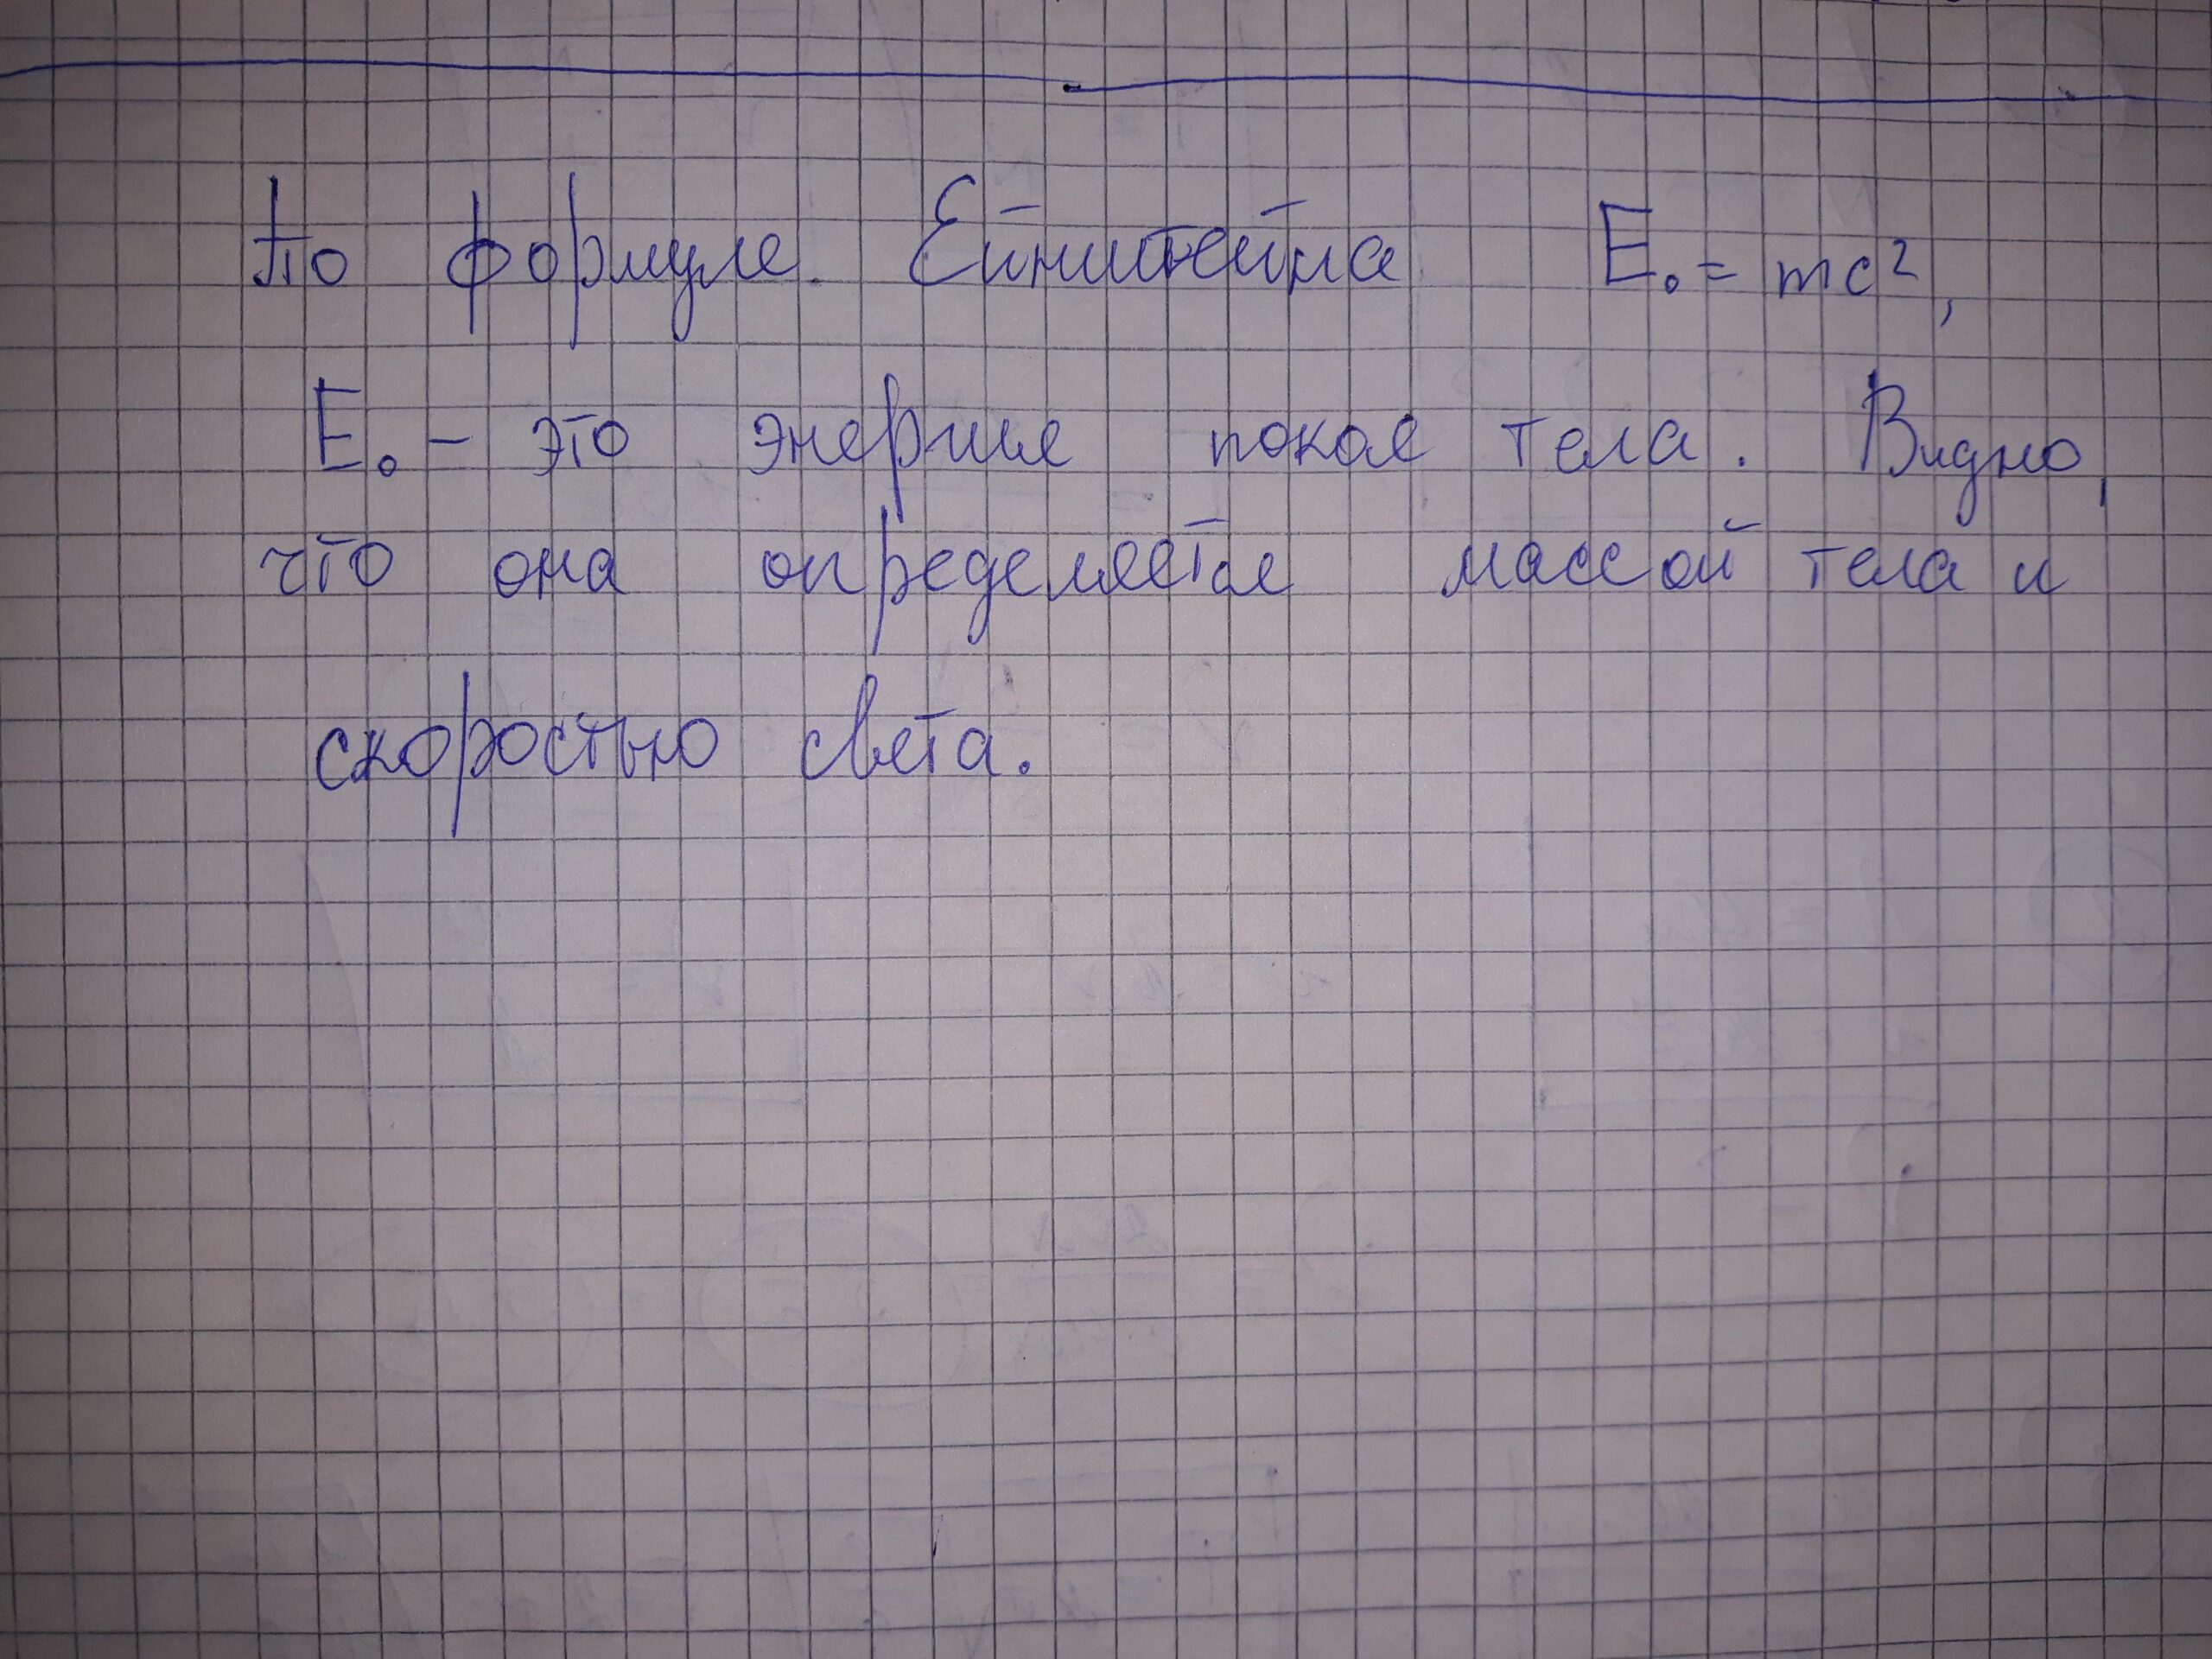 По формуле Ейнштейна E₀ = mc²,
E₀ - это энергия покоя тела. Видно,
что она определяется массой тела и
скоростью света.